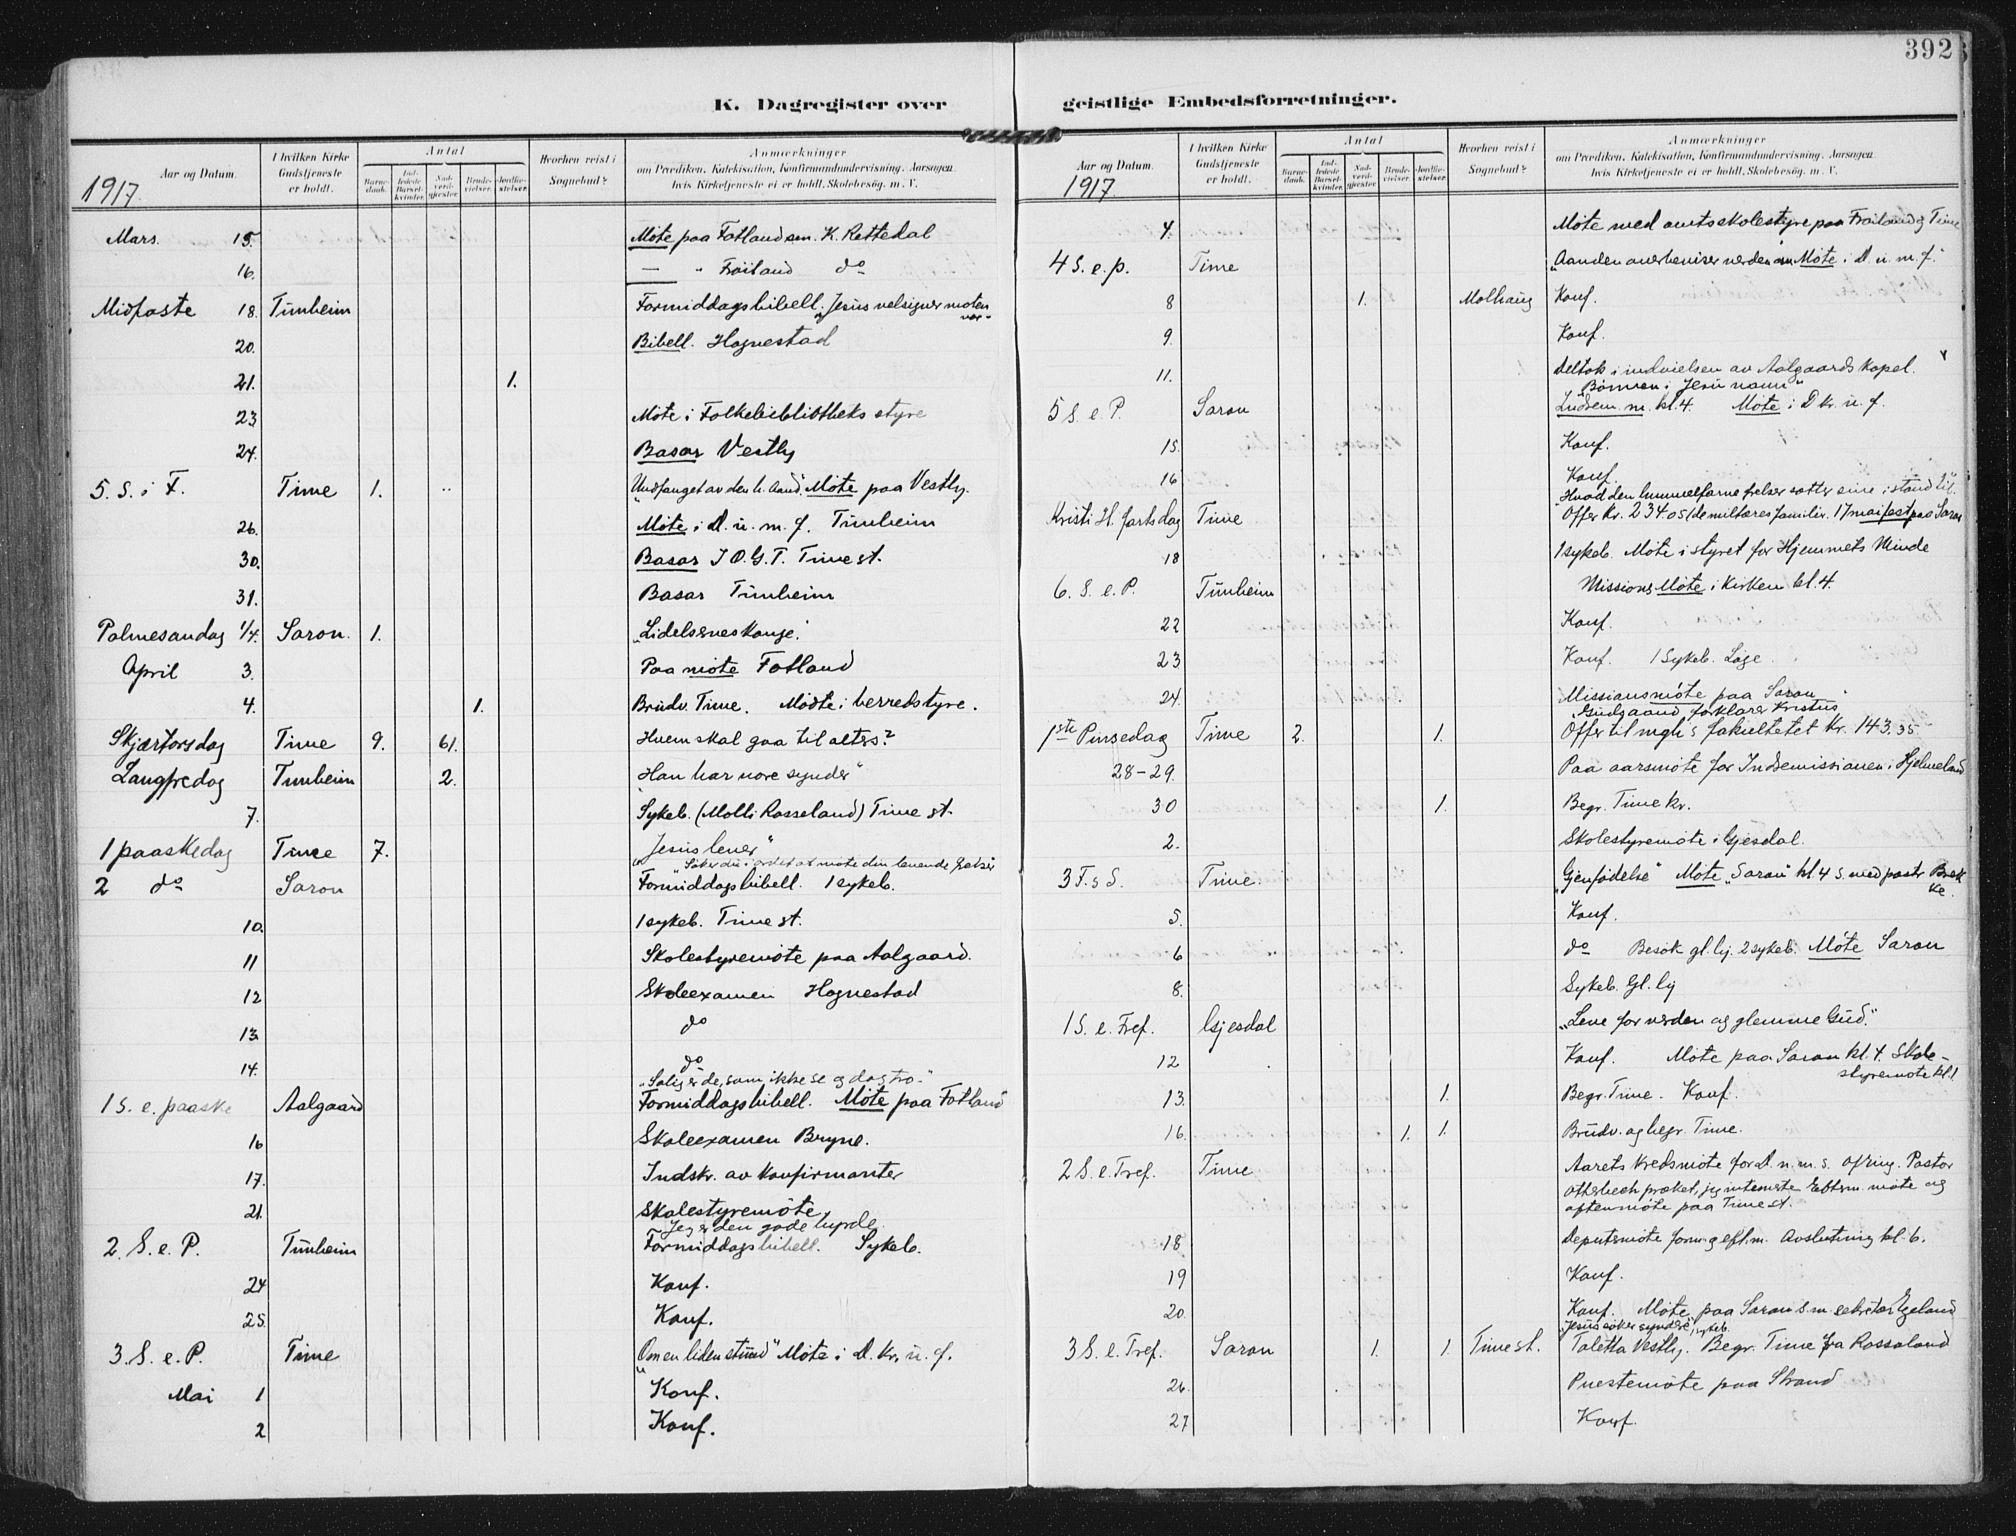 392
K. Dagregister over
geistlige Embedsforretninger.
Aar og Datum.
I hvilken Kirke Gudstjeneste er holdt.
Antal
Barne-daab.
Ind-ledede Barsel-kvinder.
Nad-verd-gjester.
Brude-vielser.
Jordfæ-stelser.
Hvorhen reist i Sognebud?
Anmærkninger
om Prædiken, Katekisation, Konfirmandundervisning, Aarsagen
hvis Kirketjeneste ei er holdt, Skolebesøg, m. V.
1917.
Mars. 15. Møte paa Fotland sm. K. Rettedal
16. — " Frøiland do
Midfaste 18. Timheim Formiddagsbibell. "Jesus velsigner maten vor"
20. Bibell. Hognestad
21. 1.
23 Møte i Folkebibliotheks styre
24. Basar Vestly
5. S. i F. Time 1. " "Undfanget av den h. Aand. Møte paa Vestly.
26. Møte i D. u. m. f. Timheim
30. Basar I.O.G.T. Time st.
31. Basar Timheim
Palmesøndag 1/4. Saron. 1. "Lidelsernes konge".
April 3. Paa møte Fotland
4. 1. Brudv. Time. Mødte i herredstyre.
Skjærtorsdag Time 9. 61. Hvem skal gaa til alters?
Langfredag Timheim 2. "Han bar vore synder"
7. Sykeb. (Molli Rosseland) Time st.
1 paaskedag Time 7. "Jesus lever"
"Søker du i ordet at møte din levende frelser
2 do Saron Formiddagsbibell. 1 sykeb.
10. 1 sykeb. Time st.
11 Skolestyremøte paa Aalgaard.
12 Skoleexamen Hognestad
13. do
14. do
"Salig er de, som ikke se og dog tro."
1 S. e. paaske Aalgaard Formiddagsbibell. Møte paa Fotland
16 Skoleexamen Bryne.
17. Indskr. av konfirmanter
21. Skolestyremøte,
Jeg er den gode hyrde.
2. S. e. P. Timheim Formiddagsbibell. Sykeb.
24 Konf.
25. Konf.
3. S. e. P. Time "Om en liden stund" Møte i D. kr. u. f.
Mai 1 Konf.
2 Konf.
Aar og Datum.
I hvilken Kirke Gudstjeneste er holdt.
Antal
Barne-daab.
Ind-ledede Barsel-kvinder.
Nad-verd-gjester.
Brude-vielser.
Jordfæ-stelser.
Hvorhen reist i Sognebud?
Anmærkninger
om Prædiken, Katekisation, Konfirmandundervisning, Aarsagen
hvis Kirketjeneste ei er holdt, Skolebesøg m. V.
1917
4. Møte med amtsskolestyre paa Frøiland og Time
4 S. e. p. Time "Aanden overbeviser verden om Møte i D. u. m. f."
8 1. Molhaug Konf.
9. Konf.
11. Deltok i indvielsen av Aalgaards kapel.
"Bønnen i Jesu navn"
5 S. e. P. Saron Indsm. m. kl. 4. Møte i D kr. u. f.
15. Konf.
16 Konf.
Hvad den himmelfarne frelser sætter sine i stand til.
Kristi H. fartsdag Time Offer Kr. 234.05 (de militæres familier. 17 maifest paa Saron
18 1 sykeb. Møte i styret for Hjemmets Minde
6. S. e. P. Timheim Missions Møte i kirken kl. 4.
22 Konf.
23 Konf. 1 Sykeb. Løge.
24. Missionsmøte paa Saron
Gudsaand forklarer Kristus
1ste Pinsedag Time 2. 1. Offer til mgh.s fakultetet kr. 143.35
28-29. Paa aarsmøte for Indremissionen i Hjelmeland
30 1. Begr. Time kr.
2. Skolestyremøte i Gjesdal.
3 F. s S. Time. "Gjenfødelse" Møte "Saron" kl. 4 s. med pastr Brekke.
5. Konf.
6 do Besøk gl. hj. 2 sykeb. Møte Saron
8. Sykeb. Gl. hj
1 S. e. Tref. Gjesdal "Leve for verden og glemme Gud."
12 Konf. Møte paa Saron kl. 4. Skole-
styremøte kl. 1
13. 1. Begr. Time. Konf.
16. 1. 1. Brudv. og begr. Time.
2 S. e. Tref. Time Aarets kredsmøte for D. n. m. s. ofring. Pastor
Otterbech præket, jeg 
Efterm. møte og
aftenmøte paa Time st.
18. Deputsmøte form. og eft.m. Avslutning kl. 6.
19 Konf.
20. Konf. Møte paa Saron s. m. sekretær Egeland
"Jesus søker syndere", sykeb.
3 S. e. Tref. Saron 1. 1. Time st. Taletta Vestly. Begr. Time fra Rossaland
26. Prestemøte paa Strand
27 Konf.